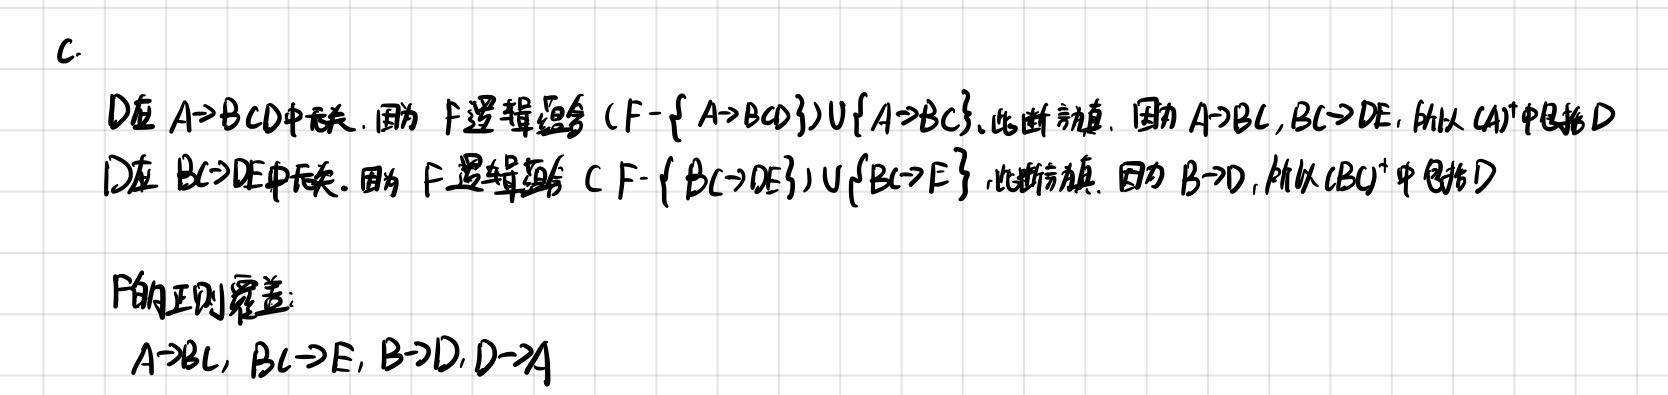 C.
D在 A→BCD中无关. 因为 F逻辑蕴含 (F-{A→BCD})∪{A→BC}, 此断言为真. 因为 A→BC, BC→DE, 所以 (A)⁺中包括D
D在 BC→DE中无关. 因为 F逻辑蕴含 (F-{BC→DE})∪{BC→E}, 此断言为真. 因为 B→D, 所以(BC)⁺中包括D
F的正则覆盖:
A→BC, BC→E, B→D, D→A